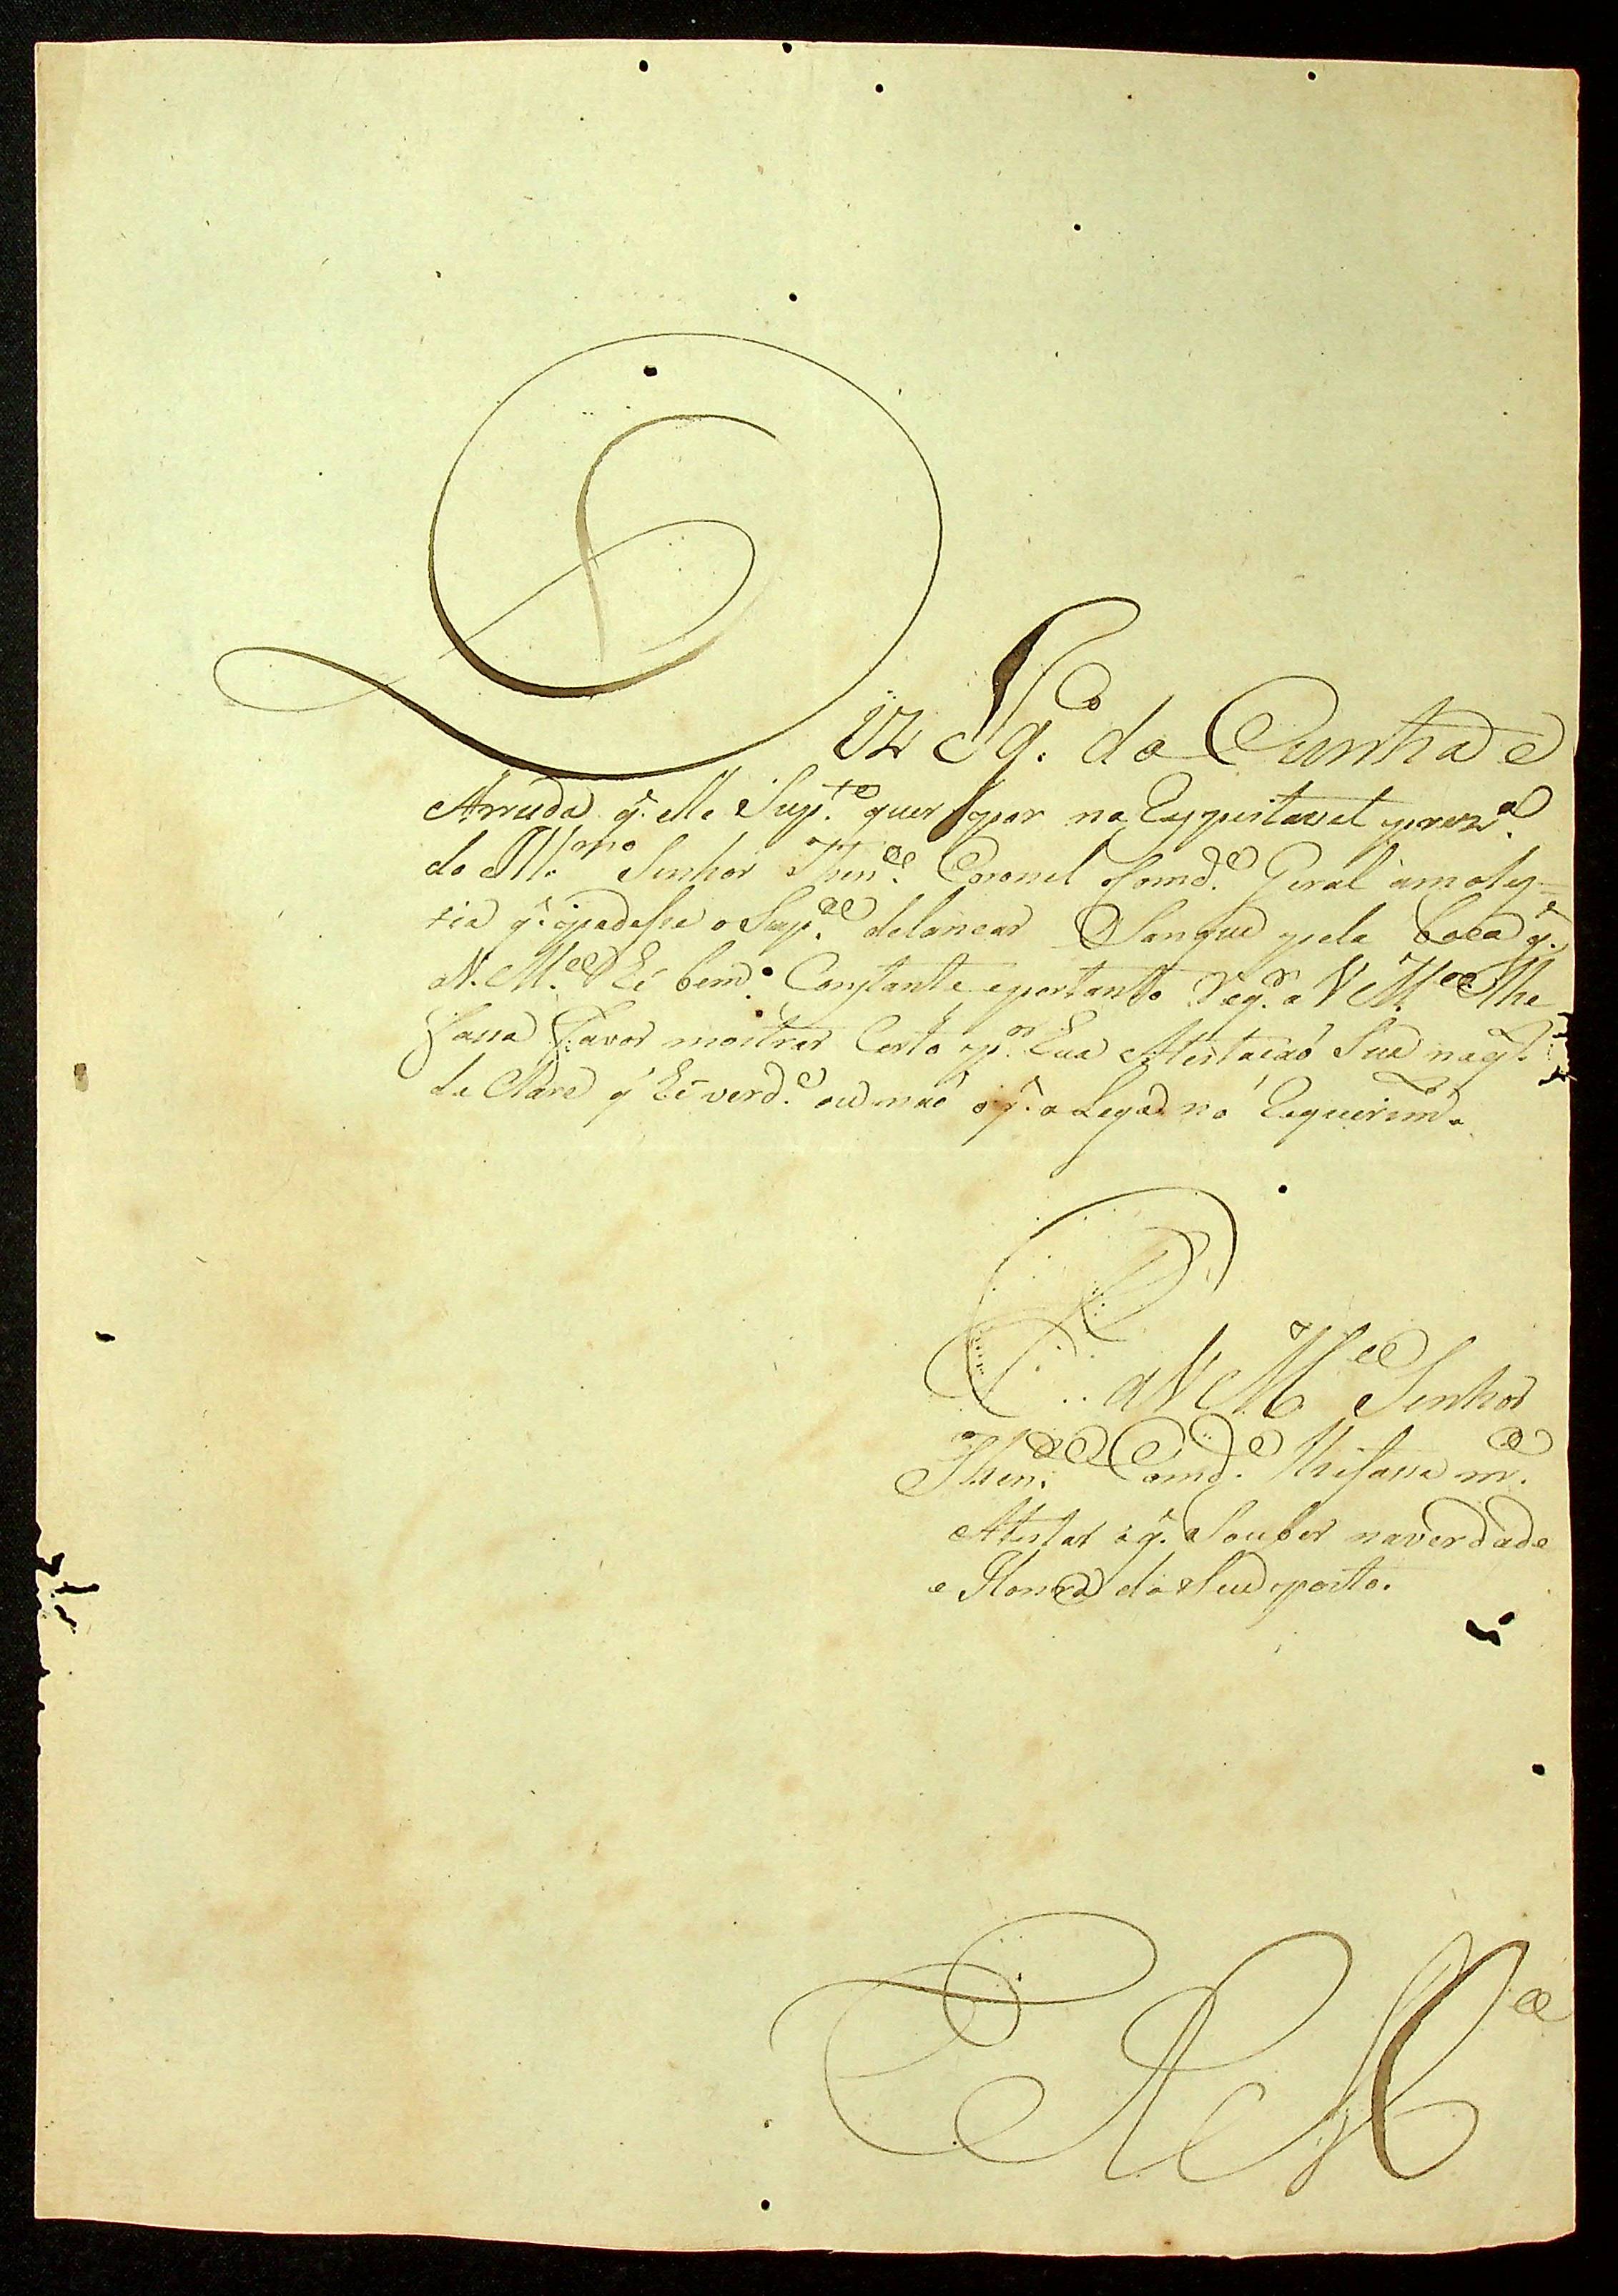 Diz Ig.co da Cunha e
Arruda q. elle Sup.te quer por na Respeitavel prezn.a
do Ill.mo Senhor Then.e Coronel Comd.e Geral amoles=
tia q. padesse o Sup.e delancar Sangue pela boca q.
aV. M.ce He bem Constante eportanto Req.r a V M.ce lhe
fassa Favor mostrar Certo p.or Sua Atestacaó Sua naq.l
de Clare q' he verd.e ou naó oq. alega no Requerim.to
P. aV M.ce Senhor
Then.e Comd.e lhefassa m.ce
Atestar oq. Souber naverdade
e Honra do Seu posto.
E R M.ce